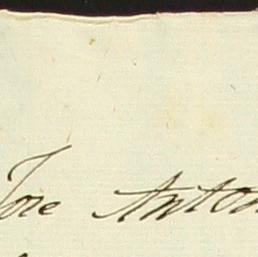 Jose Anton